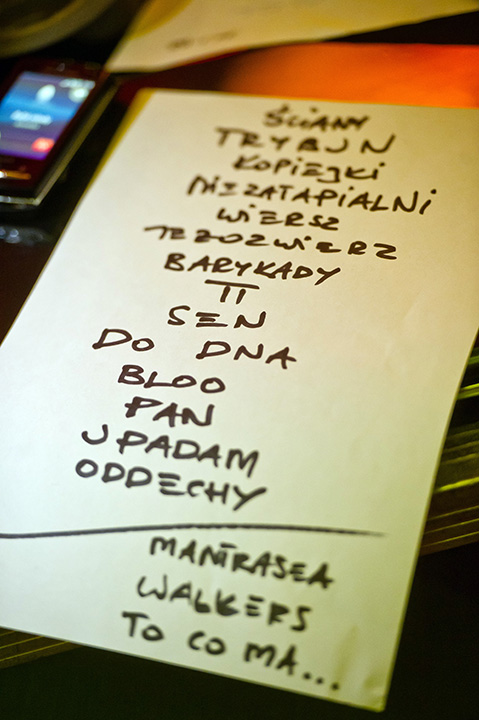 ŚCIANY
TRYBUN
KOPIEJKI
NIEZATAPIALNI
WIERSZ
TEZOZWIERZ
BARYKADY
II
SEN
DO DNA
BLOO
PAN
UPADAM
ODDECHY
MANTRASEA
WALKERS
TO CO MA...